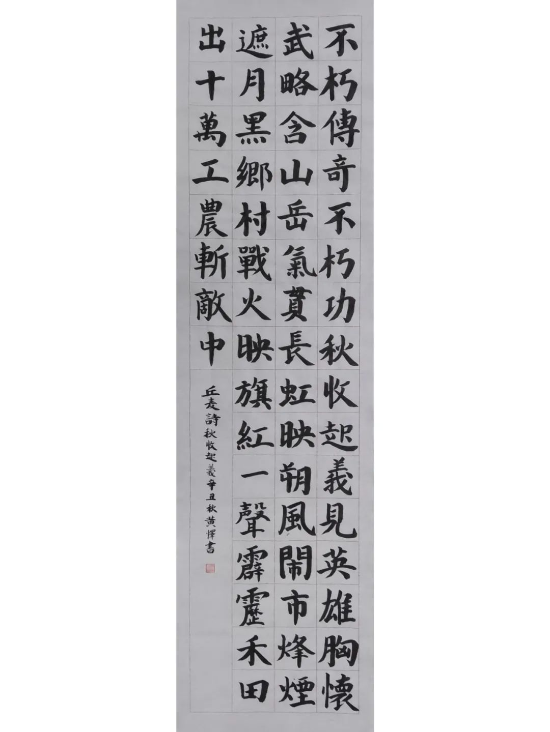 不朽傳奇不朽功秋收起義見英雄胸懷
武略含山岳氣貫長虹映朔風鬧市烽煙
遮月黑鄉村戰火映旗紅一聲霹靂禾田
出十萬工農斬敵中
丘友詩秋收起義辛丑秋黄懌書